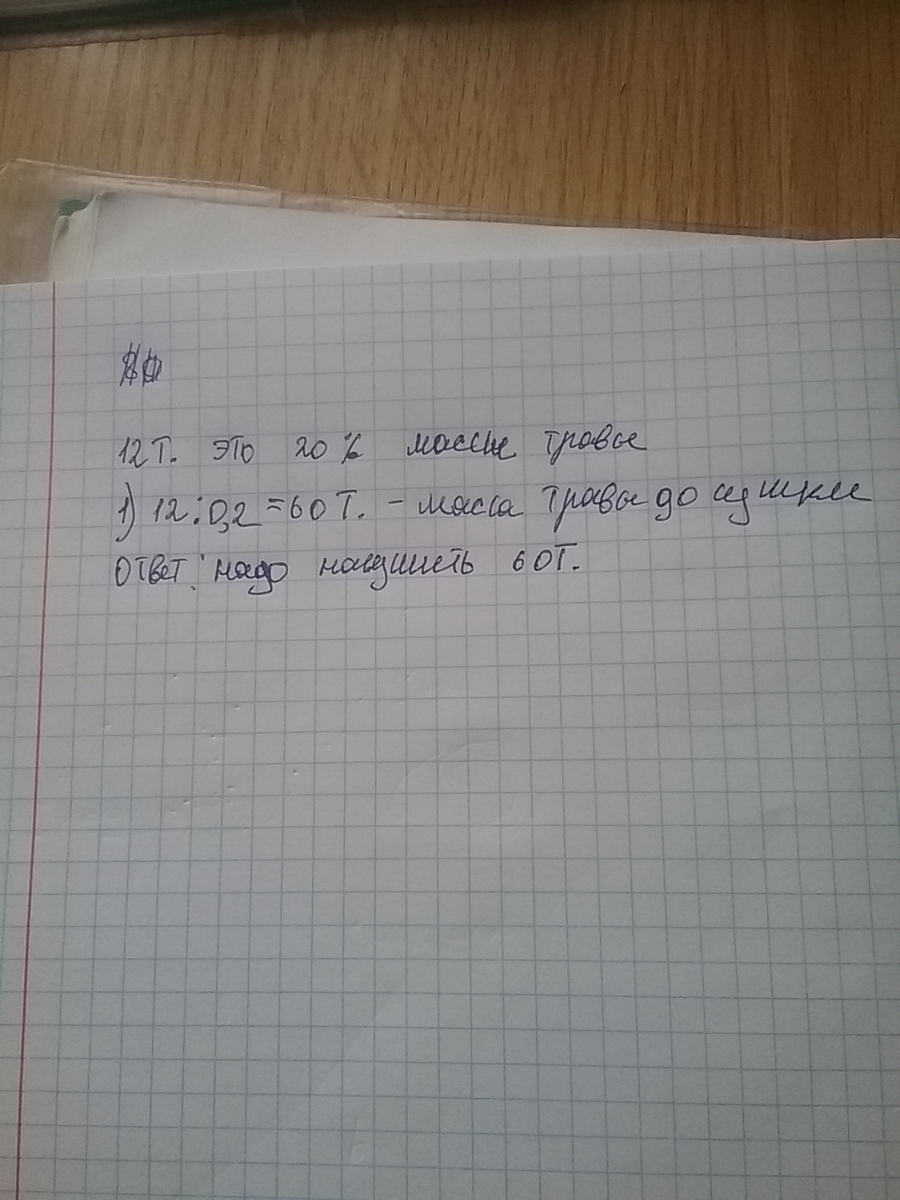 12 т. это 20% массы травы
1) 12:0,2=60 т. - масса травы до сушки
Ответ: надо насушить 60т.